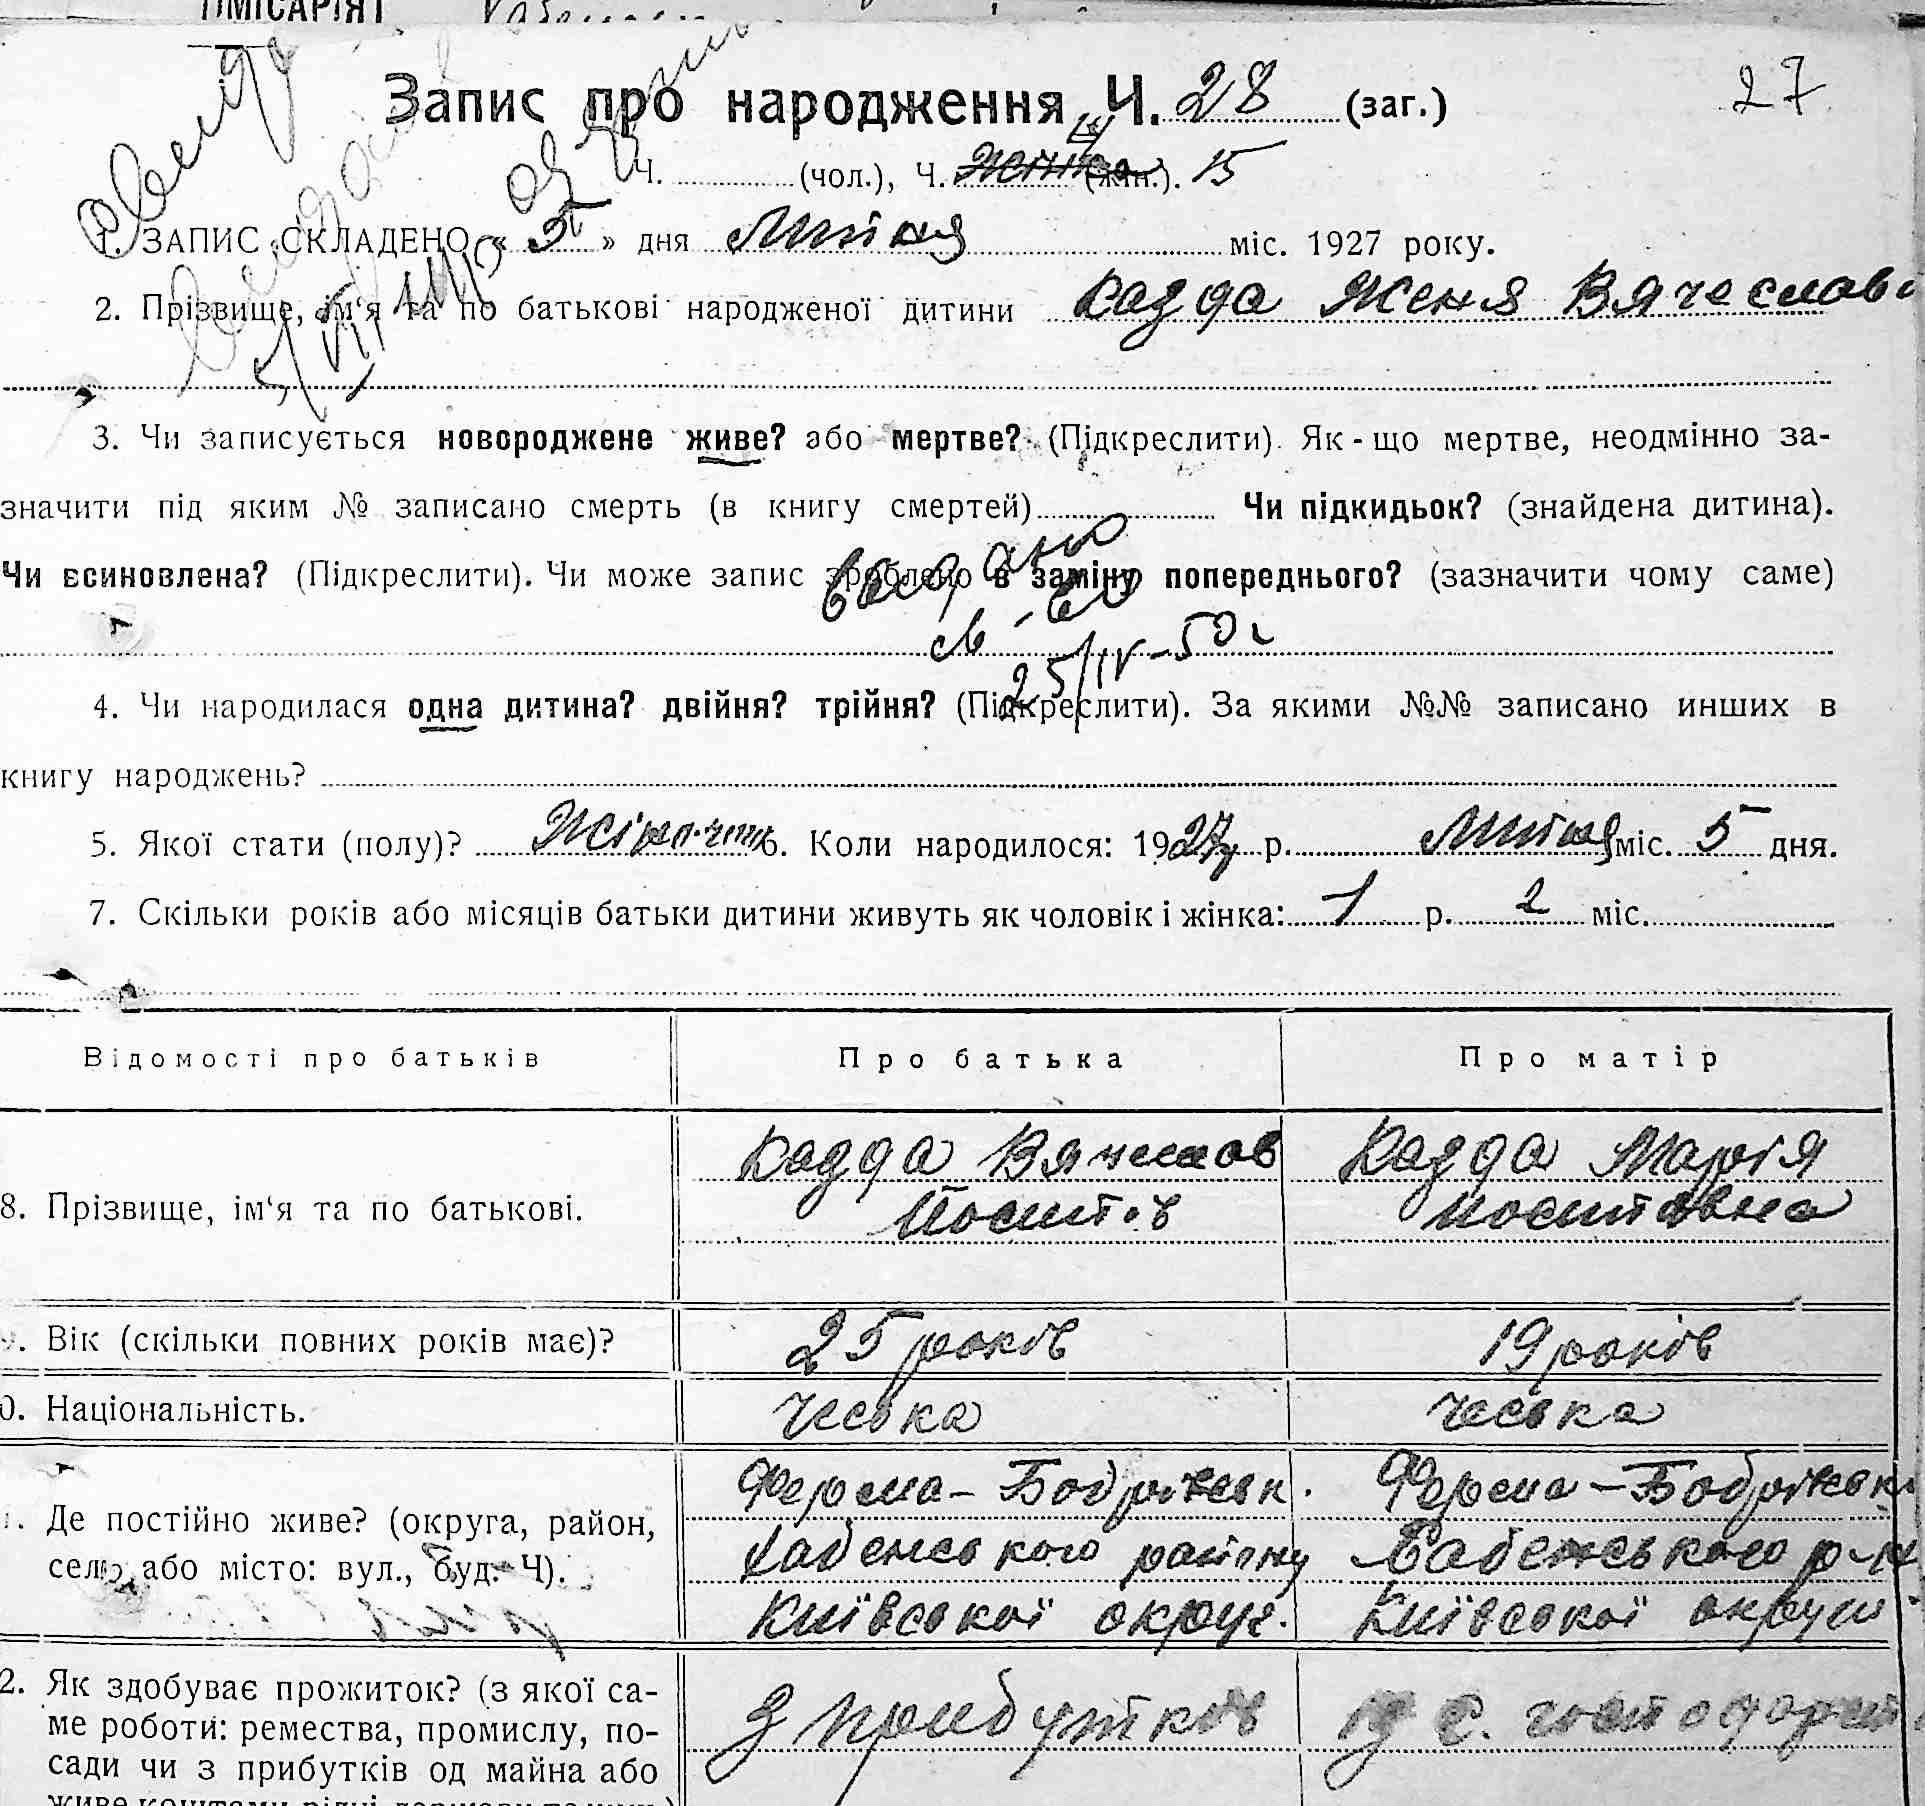 Запис про народження Ч. 28 (заг.)
27
Ч. (чол.), Ч. (жін.). 15
1. ЗАПИС СКЛАДЕНО « 5 » дня Липня міс. 1927 року.
2. Прізвище, ім‘я та по батькові народженої дитини Кадда Женя Вячеслав
3. Чи записується новороджене живе? або мертве? (Підкреслити). Як - що мертве, неодмінно за-
значити під яким № записано смерть (в книгу смертей) Чи підкидьок? (знайдена дитина).
Чи всиновлена? (Підкреслити). Чи може запис зроблено в заміну попереднього? (зазначити чому саме)
выдано
св-во
25/IV-50 г
4. Чи народилася одна дитина? двійня? трійня? (Підкреслити). За якими №№ записано инших в
книгу народжень?
5. Якої стати (полу)? Жіноч. 6. Коли народилося: 1927 р. Липня міс. 5 дня.
7. Скільки років або місяців батьки дитини живуть як чоловік і жінка: 1 р. 2 міс.
Відомості про батьків Про батька Про матір
Кадда Вячеслав Кадда Марія
8. Прізвище, ім‘я та по батькові. Йосипів Йосипівна
. Вік (скільки повних років має)? 25 років 19 років
0. Національність. чеська чеська
Ферма-Бобрівськ. Ферма-Бобрівськ
. Де постійно живе? (округа, район, Хабенського району Хабенського р-н
село, або місто: вул., буд. Ч).
Київської округ. Київської округи
2. Як здобуває прожиток? (з якої са- З прибутків с. господарст
ме роботи: ремества, промислу, по-
сади чи з прибутків од майна або